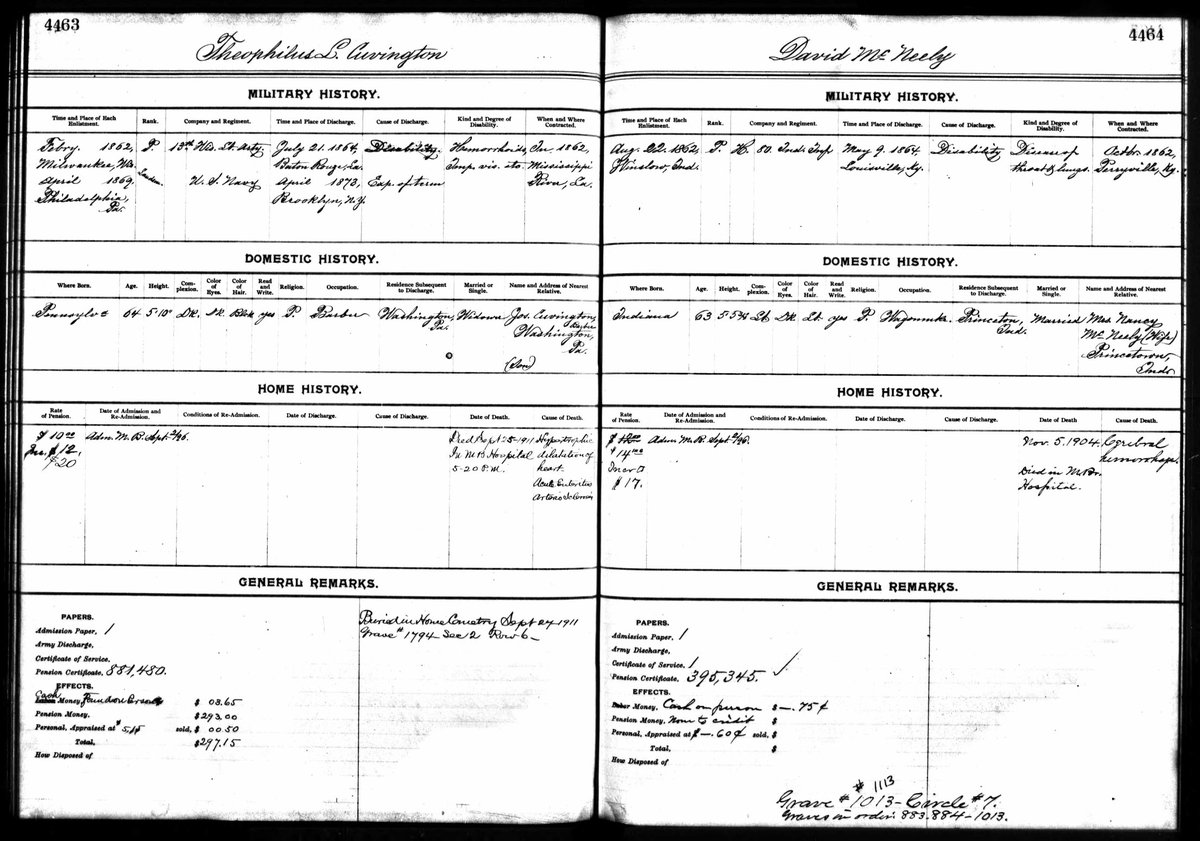 4463
Theophilus L. Cuvington
MILITARY HISTORY.
Time and Place of Each Enlistment. Rank. Company and Regiment. Time and Place of Discharge. Cause of Discharge. Kind and Degree of Disability. When and Where Contracted.
Febry. 1862, P. 13th Wis. Lt. Arty. July 21. 1864, Disability. Hemorrhoids, Jan. 1862,
Milwaukee, Wis. Baton Rouge, La. Imp. vis. etc. Mississippi
April 1869. Landsm. U. S. Navy April 1873, Exp. of term River, La.
Philadelphia, Brooklyn, N.Y.
Pa.
DOMESTIC HISTORY.
Where Born. Age. Height. Complexion. Color of Eyes. Color of Hair. Read and Write. Religion. Occupation. Residence Subsequent to Discharge. Married or Single. Name and Address of Nearest Relative.
64 5-10 Dk. Dk Blk yes P. Barber Washington, Widower Jos. Cuvington,
Pa. Washington,
Pa.
(Son)
HOME HISTORY.
Rate of Pension. Date of Admission and Re-Admission. Conditions of Re-Admission. Date of Discharge. Cause of Discharge. Date of Death. Cause of Death.
$10.00 Adm. M. B. Sept. 2/96. Died Sept 25-1911 Hypertrophic
Inc. $12. In M B Hospital dilatation of
$20 5-20 P.M. heart.
Acute Enteritis
Arterio Sclerosis
GENERAL REMARKS.
Buried in Home Cemetry Sept 27-1911
Grave # 1794- Sec 2 Row 6-
PAPERS.
Admission Paper, 1
Army Discharge,
Certificate of Service.
Pension Certificate. 881,480.
EFFECTS.
Cash
Money, Found on $ 03.65
Pension Money. $293.00
Personal, Appraised at sold, $ 00.50
Total, $297.15
How Disposed of
4464
David McNeely
MILITARY HISTORY.
Time and Place of Each Enlistment. Rank. Company and Regiment. Time and Place of Discharge. Cause of Discharge. Kind and Degree of Disability. When and Where Contracted.
Aug. 22. 1862, P. H. 80. Ind. Inf. May 9. 1864. Disability Disease of Octbr. 1862,
Winslow, Ind. Louisville, Ky. throat & lungs. Perryville, Ky.
DOMESTIC HISTORY.
Where Born. Age. Height. Complexion. Color of Eyes. Color of Hair. Read and Write. Religion. Occupation. Residence Subsequent to Discharge. Married or Single. Name and Address of Nearest Relative.
Indiana 63 5-5¾ Lt Dk Lt. yes P. Wagonmkr. Princeton, Married Mrs Nancy
Ind. McNeely (Wife)
Princetown,
Inda
HOME HISTORY.
Rate of Pension. Date of Admission and Re-Admission. Conditions of Re-Admission. Date of Discharge. Cause of Discharge. Date of Death Cause of Death.
$12.00 Adm. M. B. Sept. 2/96. Nov. 5. 1904. Cerebral
$14.00 hemorrhage.
Died in M. Br.
$17. Hospital.
GENERAL REMARKS.
PAPERS.
Admission Paper, 1
Army Discharge,
Certificate of Service. 1
Pension Certificate. 395,345. ✓
EFFECTS.
Labor Money, Cash on person $ -. 75¢
Pension Money, None to credit $
Personal, Appraised at $-. 60¢ sold, $
Total, $
How Disposed of
# 1113
Grave # 1013- Circle # 7.
Graves in order: 883. 884-1013.